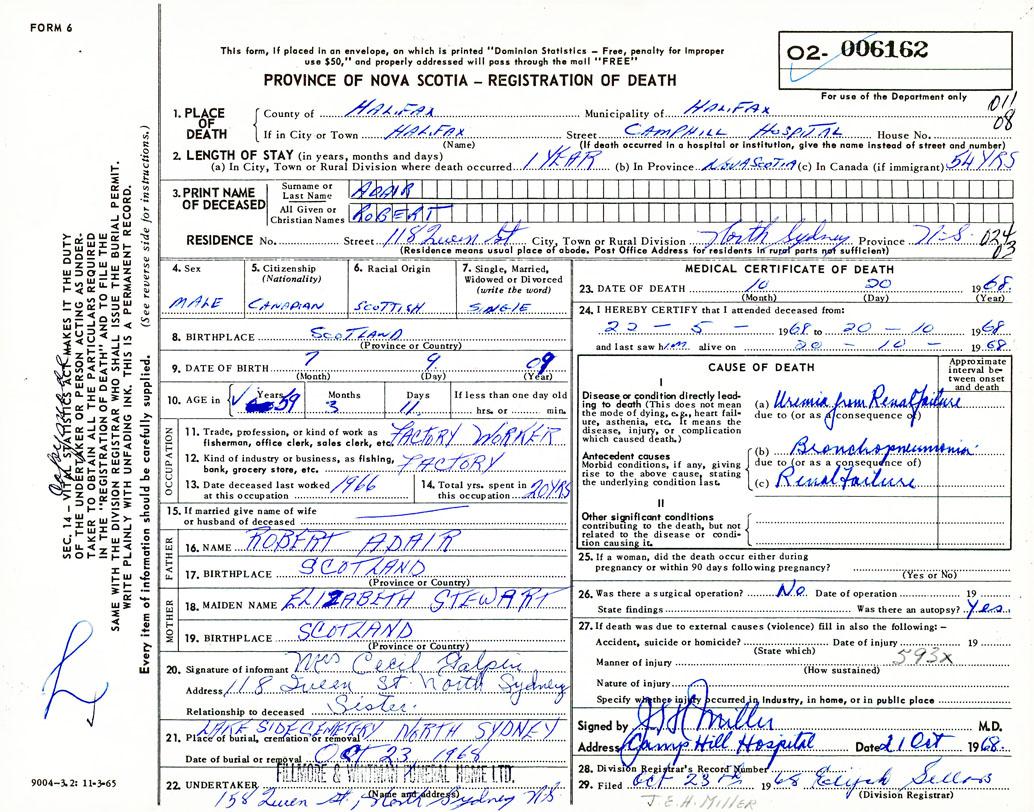 FORM 6
This form, if placed in an envelope, on which is printed "Dominion Statistics – Free, penalty for improper
use $50," and properly addressed will pass through the mail "FREE"
PROVINCE OF NOVA SCOTIA – REGISTRATION OF DEATH
02- 006162
For use of the Department only
011
08
1. PLACE OF DEATH
County of HALIFAX Municipality of HALIFAX
If in City or Town HALIFAX Street CAMPHILL HOSPITAL House No.
(Name) (If death occurred in a hospital or institution, give the name instead of street and number)
2. LENGTH OF STAY (in years, months and days)
(a) In City, Town or Rural Division where death occurred 1 YEAR (b) In Province NOVA SCOTIA (c) In Canada (if immigrant) 54 YRS
3. PRINT NAME OF DECEASED
Surname or Last Name ADAIR
All Given or Christian Names ROBERT
RESIDENCE No. Street 118 Queen St. City, Town or Rural Division North Sydney Province N.S. 024
03
(Residence means usual place of abode. Post Office Address for residents in rural parts not sufficient)
4. Sex
MALE
5. Citizenship
(Nationality)
CANADIAN
6. Racial Origin
SCOTTISH
7. Single, Married,
Widowed or Divorced
(write the word)
SINGLE
8. BIRTHPLACE SCOTLAND
(Province or Country)
9. DATE OF BIRTH 7 9 09
(Month) (Day) (Year)
10. AGE in Years 59 Months 3 Days 11 If less than one day old
hrs. or min.
OCCUPATION
11. Trade, profession, or kind of work as
fisherman, office clerk, sales clerk, etc. FACTORY WORKER
12. Kind of industry or business, as fishing,
bank, grocery store, etc. FACTORY
13. Date deceased last worked
at this occupation 1966
14. Total yrs. spent in
this occupation 20 YRS
15. If married give name of wife
or husband of deceased
FATHER
16. NAME ROBERT ADAIR
17. BIRTHPLACE SCOTLAND
(Province or Country)
MOTHER
18. MAIDEN NAME ELIZABETH STEWART
19. BIRTHPLACE SCOTLAND
(Province or Country)
20. Signature of informant Mrs Cecil Galpin
Address 118 Queen St North Sydney
Relationship to deceased Sister.
21. Place of burial, cremation or removal LAKE SIDE CEMETERY NORTH SYDNEY
Date of burial or removal Oct 23, 1968
FILLMORE & WHITMAN FUNERAL HOME LTD.
22. UNDERTAKER 158 Queen St., North Sydney N.S.
(Name and address)
MEDICAL CERTIFICATE OF DEATH
23. DATE OF DEATH 10 20 1968.
(Month) (Day) (Year)
24. I HEREBY CERTIFY that I attended deceased from:
22 – 5 – 1968 to 20 – 10 1968
and last saw him alive on 20 – 10 – 1968.
CAUSE OF DEATH
Approximate
interval be-
tween onset
and death
I
Disease or condition directly lead-
ing to death (This does not mean
the mode of dying, e.g., heart fail-
ure, asthenia, etc. It means the
disease, injury, or complication
which caused death.)
(a) Uremia from Renal failure
due to (or as a consequence of)
Antecedent causes
Morbid conditions, if any, giving
rise to the above cause, stating
the underlying condition last.
(b) Bronchopneumonia
due to (or as a consequence of)
(c) Renal Failure
II
Other significant conditions
contributing to the death, but not
related to the disease or condi-
tion causing it.
25. If a woman, did the death occur either during
pregnancy or within 90 days following pregnancy?
(Yes or No)
26. Was there a surgical operation? No. Date of operation 19
State findings Was there an autopsy? Yes.
27. If death was due to external causes (violence) fill in also the following: –
Accident, suicide or homicide? Date of injury 19
(State which)
593X
Manner of injury
(How sustained)
Nature of injury
Specify whether injury occurred in industry, in home, or in public place
Signed by J H Miller M.D.
Address Camp Hill Hospital Date 21 Oct 1968.
28. Division Registrar's Record Number
29. Filed Oct 23rd 1968
(Division Registrar)
J.E.H. MILLER
SEC. 14 – VITAL STATISTICS ACT MAKES IT THE DUTY
OF THE UNDERTAKER OR PERSON ACTING AS UNDER-
TAKER TO OBTAIN ALL THE PARTICULARS REQUIRED
IN THE "REGISTRATION OF DEATH" AND TO FILE THE
SAME WITH THE DIVISION REGISTRAR WHO SHALL ISSUE THE BURIAL PERMIT.
WRITE PLAINLY WITH UNFADING INK. THIS IS A PERMANENT RECORD.
Every item of information should be carefully supplied. (See reverse side for instructions.)
9004–3.2: 11-3-65